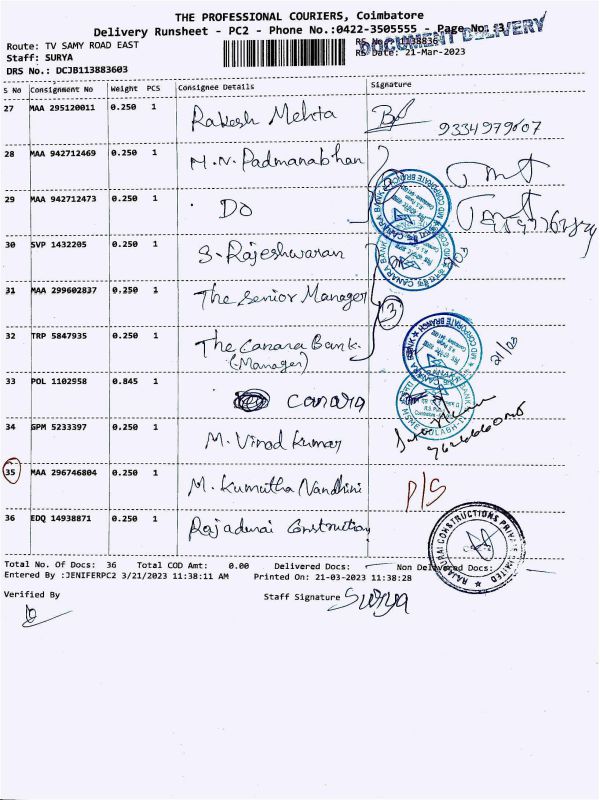 THE PROFESSIONAL COURIERS, Coimbatore
Delivery Runsheet - PC2 - Phone No.:0422-3505555 - Page No: 3
DOCUMENT DELIVERY
Route: TV SAMY ROAD EAST
Staff: SURYA
RS Date: 21-Mar-2023
DRS No.: DCJB113883603
S No Consignment No Weight PCS Consignee Details Signature
27 MAA 295120011 0.250 1 Rakesh Mehta
28 MAA 942712469 0.250 1 M.N. Padmanabhan
29 MAA 942712473 0.250 1 Do
30 SVP 1432205 0.250 1 S. Rajeshwaran
31 MAA 299602837 0.250 1 The Senior Manager
3
32 TRP 5847935 0.250 1 The Canara Bank.
(Manager)
21/03
33 POL 1102958 0.845 1 Canara
34 GPM 5233397 0.250 1 M. Vinod Kumar
35 MAA 296746804 0.250 1 M. Kumutha Nandhini P/S
36 EDQ 14938871 0.250 1 Rajadurai Construction
RAJADURAI CONSTRUCTIONS PRIVATE LIMITED
Total No. Of Docs: 36 Total COD Amt: 0.00 Delivered Docs: Non Delivered Docs:
Entered By :JENIFERPC2 3/21/2023 11:38:11 AM Printed On: 21-03-2023 11:38:28
Verified By Staff Signature Surya